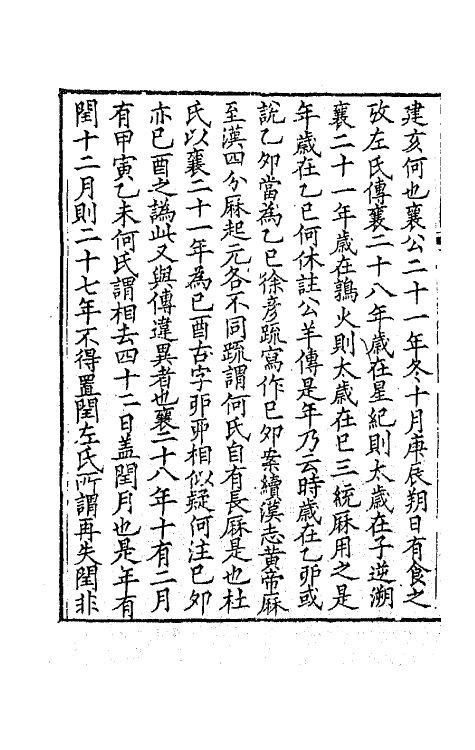 建亥何也襄公二十一年冬十月庚辰朔日有食之
攷左氏傳襄二十八年歲在星紀則太歲在子逆溯
襄二十一年歲在鶉火則太歲在巳三統厤用之是
年歲在乙巳何休註公羊傳是年乃云時歲在乙卯或
說乙夘當為乙巳徐彥疏寫作巳夘案續漢志黃帝厤
至漢四分厤起元各不同疏謂何氏自有長厤是也杜
氏以襄二十一年為巳酉古字戼丣相似疑何注巳夘
亦巳酉之譌此又與傳違異者也襄二十八年十有二月
有甲寅乙未何氏謂相去四十二日盖閏月也是年有
閏十二月則二十七年不得置閏左氏所謂再失閏非